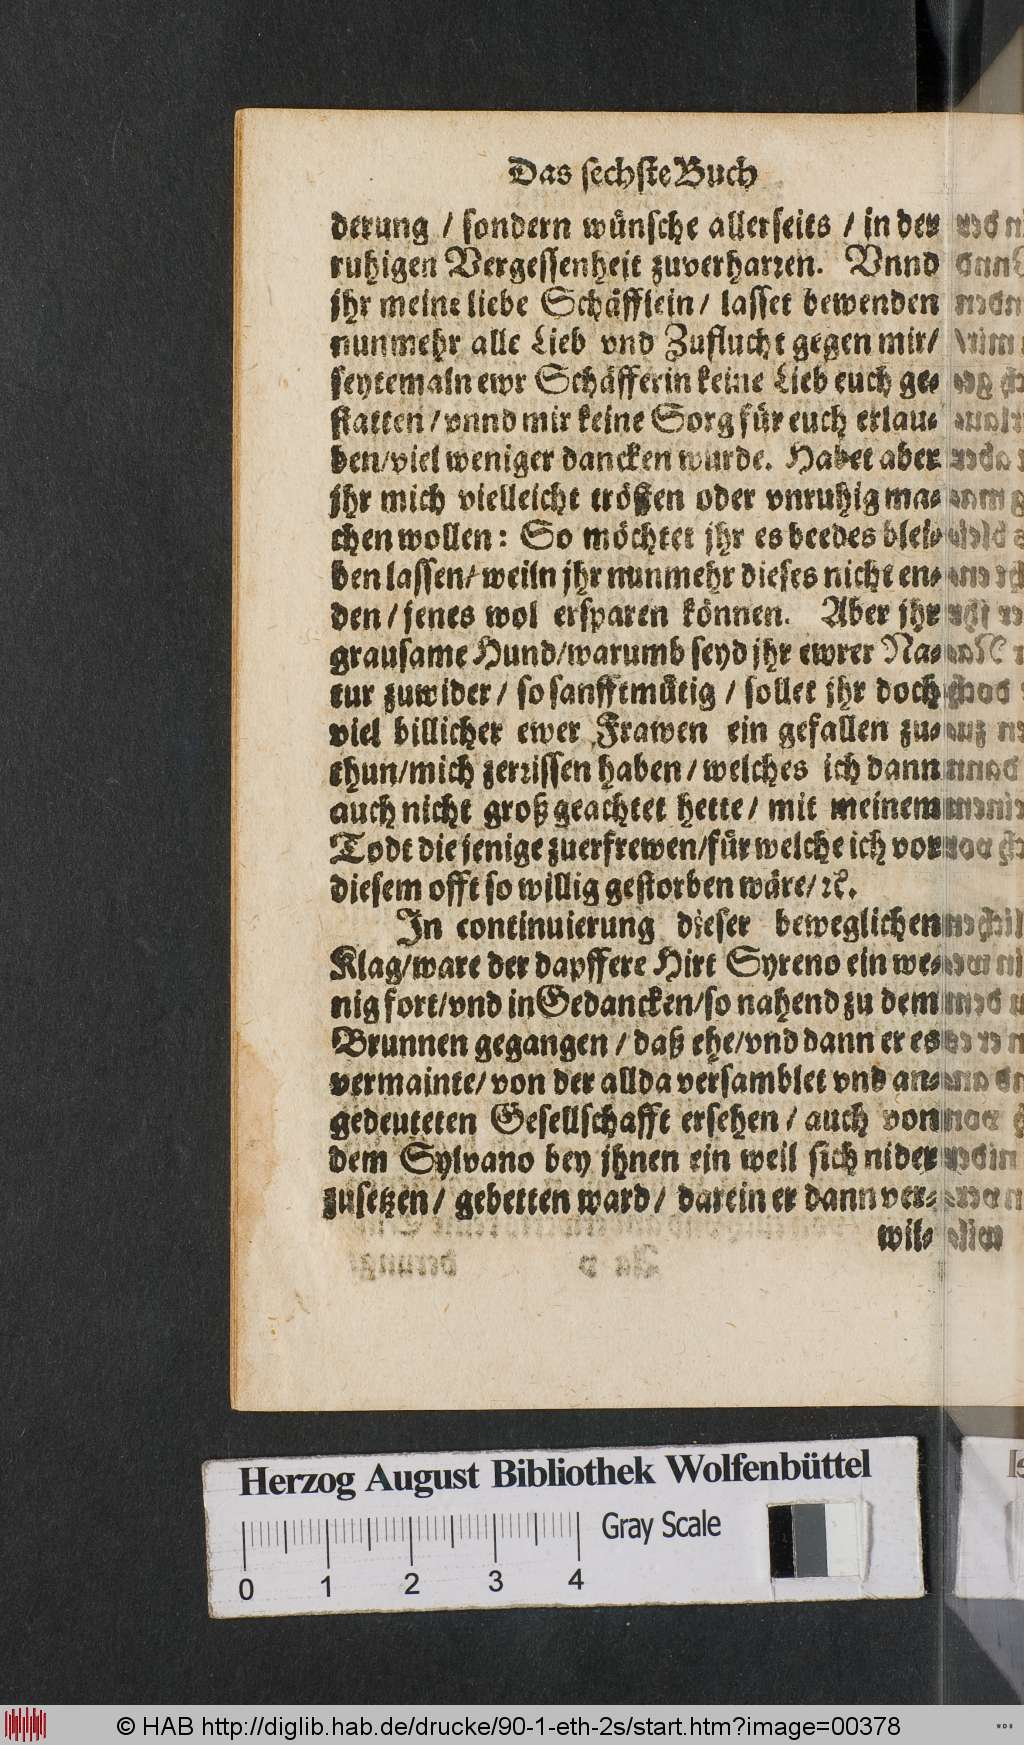 Das sechste Buch
derung / sondern wünsche allerseits / in der
ruhigen Vergessenheit zuverharren. Vnnd
jhr meine liebe Schäfflein / lasset bewenden
nunmehr alle Lieb vnd Zuflucht gegen mir /
seytemaln ewr Schäfferin keine Lieb euch ge-
statten / vnnd mir keine Sorg für euch erlau-
ben / viel weniger dancken wurde. Habet aber
jhr mich vielleicht trößen oder vnruhig ma-
chen wollen: So möchtet jhr es beedes blei-
ben lassen / weiln jhr nunmehr dieses nicht en-
den / jenes wol ersparen können. Aber jhr
grausame Hund / warumb seyd jhr ewrer Na-
tur zuwider / so sanfftmütig / sollet jhr doch
viel billicher ewer Frawen ein gefallen zu-
thun / mich zerrissen haben / welches ich dann
auch nicht groß geachtet hette / mit meinem
Todt die jenige zuerfrewen / für welche ich vor
diesem offt so willig gestorben wäre / ꝛc.
In continuierung dieser beweglichen
Klag / ware der dapffere Hirt Syreno ein we-
nig fort / vnd in Gedancken / so nahend zu dem
Brunnen gegangen / daß ehe / vnd dann er es
vermainte / von der allda versamblet vnd an-
gedeuteten Gesellschafft ersehen / auch von
dem Sylvano bey jhnen ein weil sich nider
zusetzen / gebetten ward / darein er dann ver-
wil-
Herzog August Bibliothek Wolfenbüttel
Gray Scale
0 1 2 3 4
© HAB http://diglib.hab.de/drucke/90-1-eth-2s/start.htm?image=00378